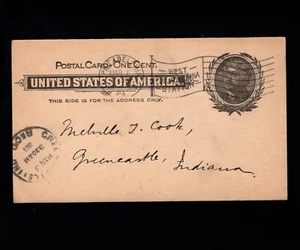 POSTAL CARD - ONE CENT.
UNITED STATES OF AMERICA
THIS SIDE IS FOR THE ADDRESS ONLY.
WEST
STATION
PA.
Melville T. Cook,
Greencastle,
Indiana.
REC'D.
MAR